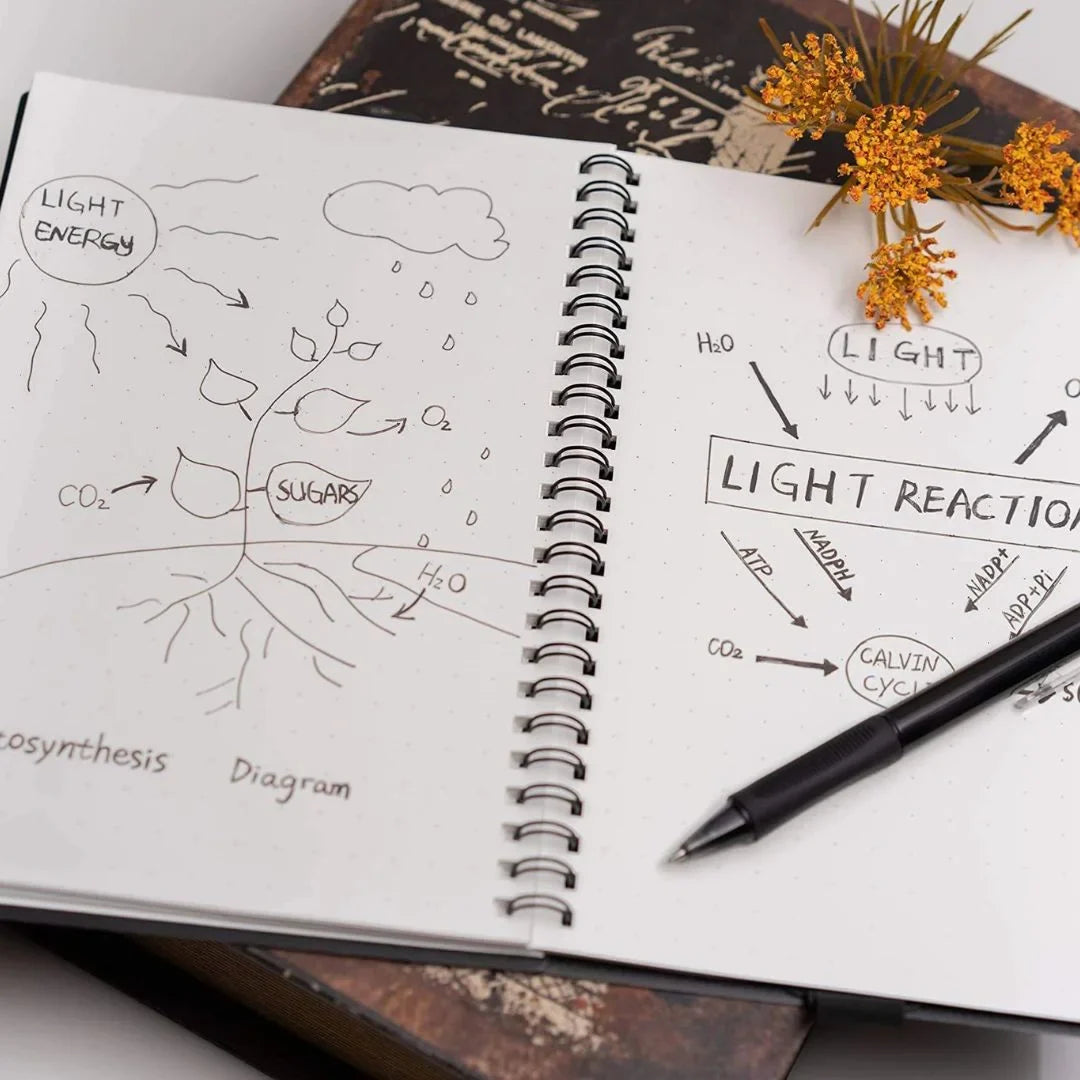 LIGHT
ENERGY
O₂
CO₂
SUGARS
H₂O
tosynthesis Diagram
H₂O
LIGHT
O
LIGHT REACTION
ATP
NADPH
NADP+
ADP+Pi
CO₂
CALVIN
CYCL